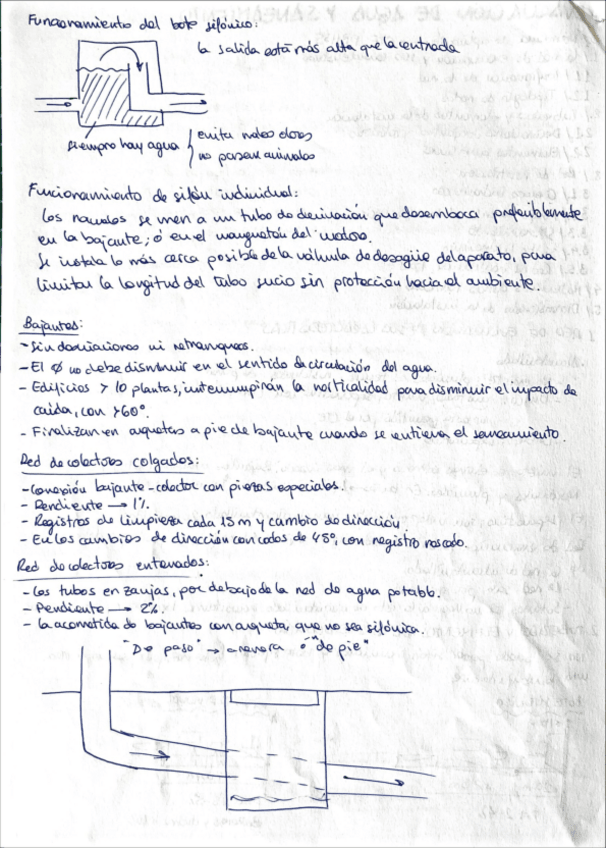 Funcionamiento del bote sifónico:
la salida está más alta que la entrada
siempre hay agua
evita malos olores
no pasean animales
Funcionamiento de sifón individual:
Los ramales se unen a un tubo de derivación que desemboca preferiblemente
en la bajante; ó en el manguetón del inodoro.
Se instala lo más cerca posible de la válvula de desagüe del aparato, para
limitar la longitud del tubo sucio sin protección hacia el ambiente.
Bajantes:
- Sin desviaciones ni retranqueos.
- El Ø no debe disminuir en el sentido de circulación del agua.
- Edificios > 10 plantas, interrumpirán la verticalidad para disminuir el impacto de
caída, con >60°.
- Finalizan en arquetas a pie de bajante cuando se entierra el saneamiento.
Red de colectores colgados:
- Conexión bajante-colector con piezas especiales.
- Pendiente → 1%.
- Registros de limpieza cada 15 m y cambio de dirección.
- En los cambios de dirección con codos de 45°, con registro roscado.
Red de colectores enterrados:
- Los tubos en zanjas, por debajo de la red de agua potable.
- Pendiente → 2%.
- La acometida de bajantes con arqueta, que no sea sifónica.
"De paso" → arenera ó "de pie"